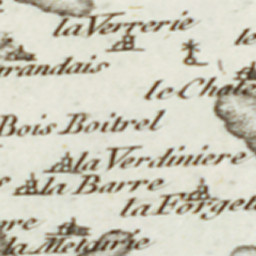 la Verrerie
le
randais
le Chate
Bois Boitrel
la Verdiniere
la Barre
la Forget
re
la Metairie